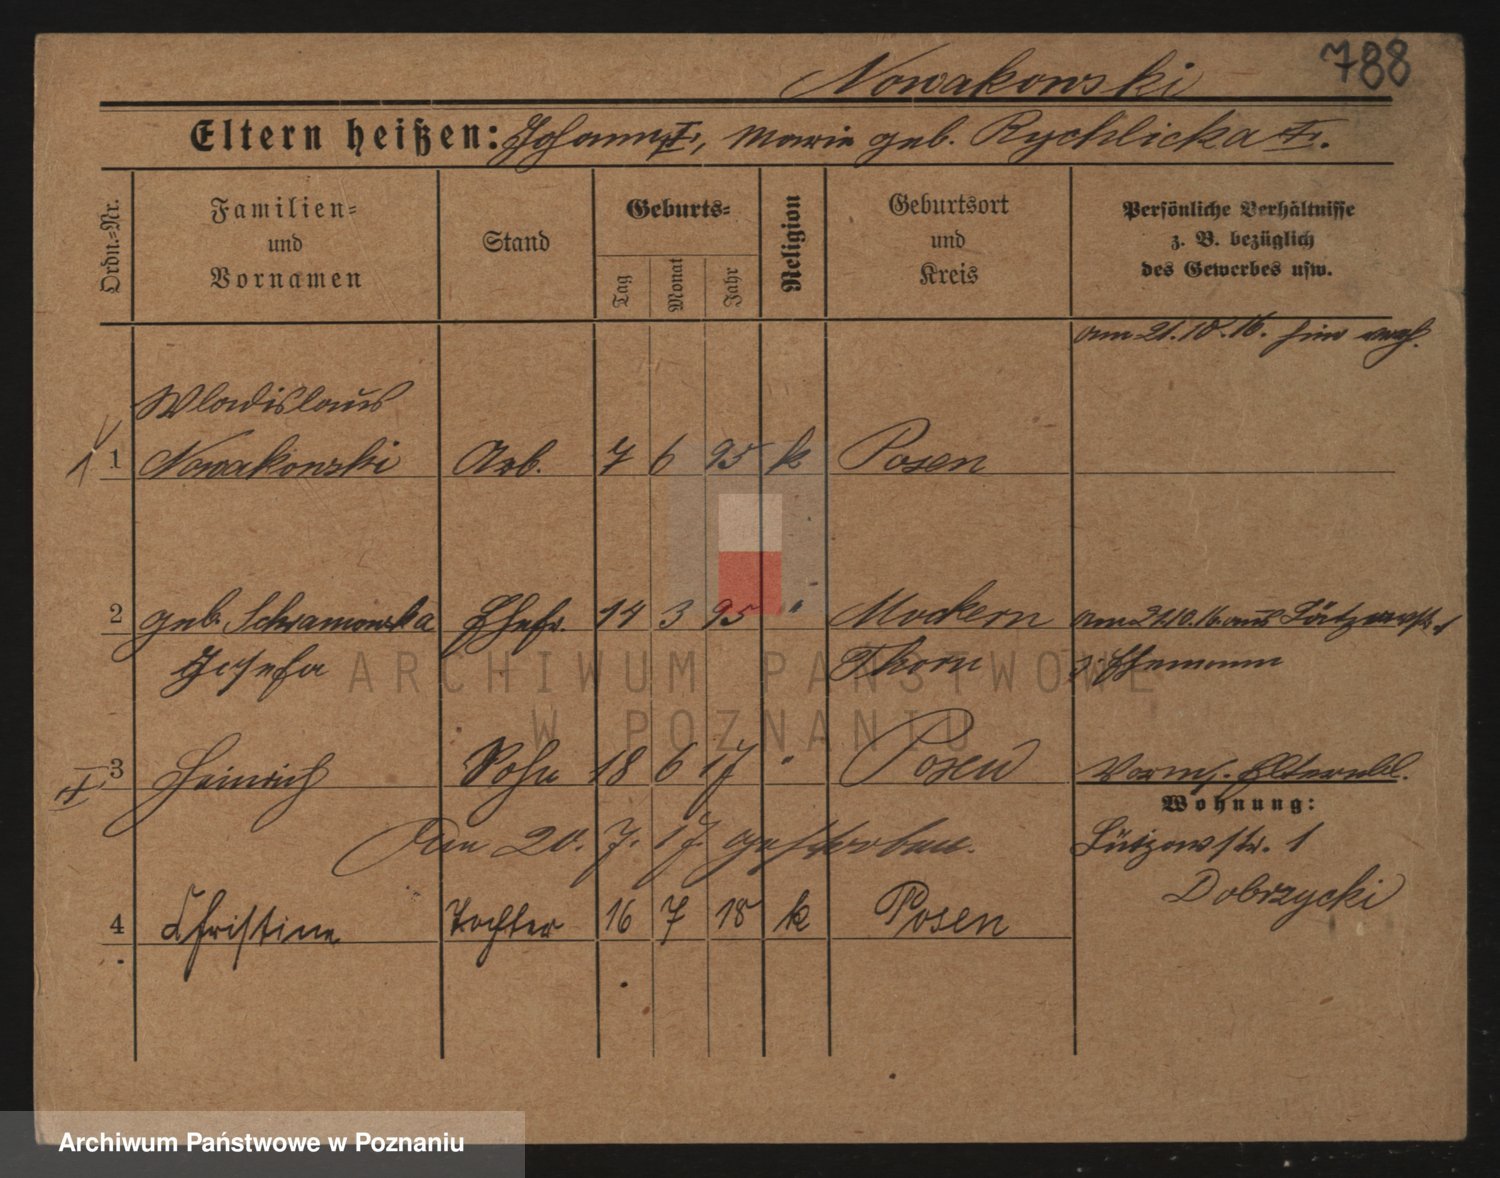 788
Nowakowski
Eltern heißen: Johann †, Marie geb. Rychlicka †.
Ordn.=Nr.
Familien=
und
Vornamen
Stand
Geburts=
Tag
Monat
Jahr
Religion
Geburtsort
und
Kreis
Persönliche Verhältnisse
z. B. bezüglich
des Gewerbes usw.
am 21.10.16. hier
Wladislaus
1 Nowakowski Arb. 7 6 95 k Posen
2 geb. Schramowska Ehefr. 14 3 95 " Mockern am 21.10.16. aus Lützowstr. 1
Josefa Thorn z. Ehemann
3 Heinrich Sohn 18 6 17 " Posen Elternbl.
Am 20. 7. 17. gestorben.
Wohnung:
Lützowstr. 1
Dobrzycki
4 Christine Tochter 16 7 18 k Posen
ARCHIWUM PAŃSTWOWE
W POZNANIU
Archiwum Państwowe w Poznaniu